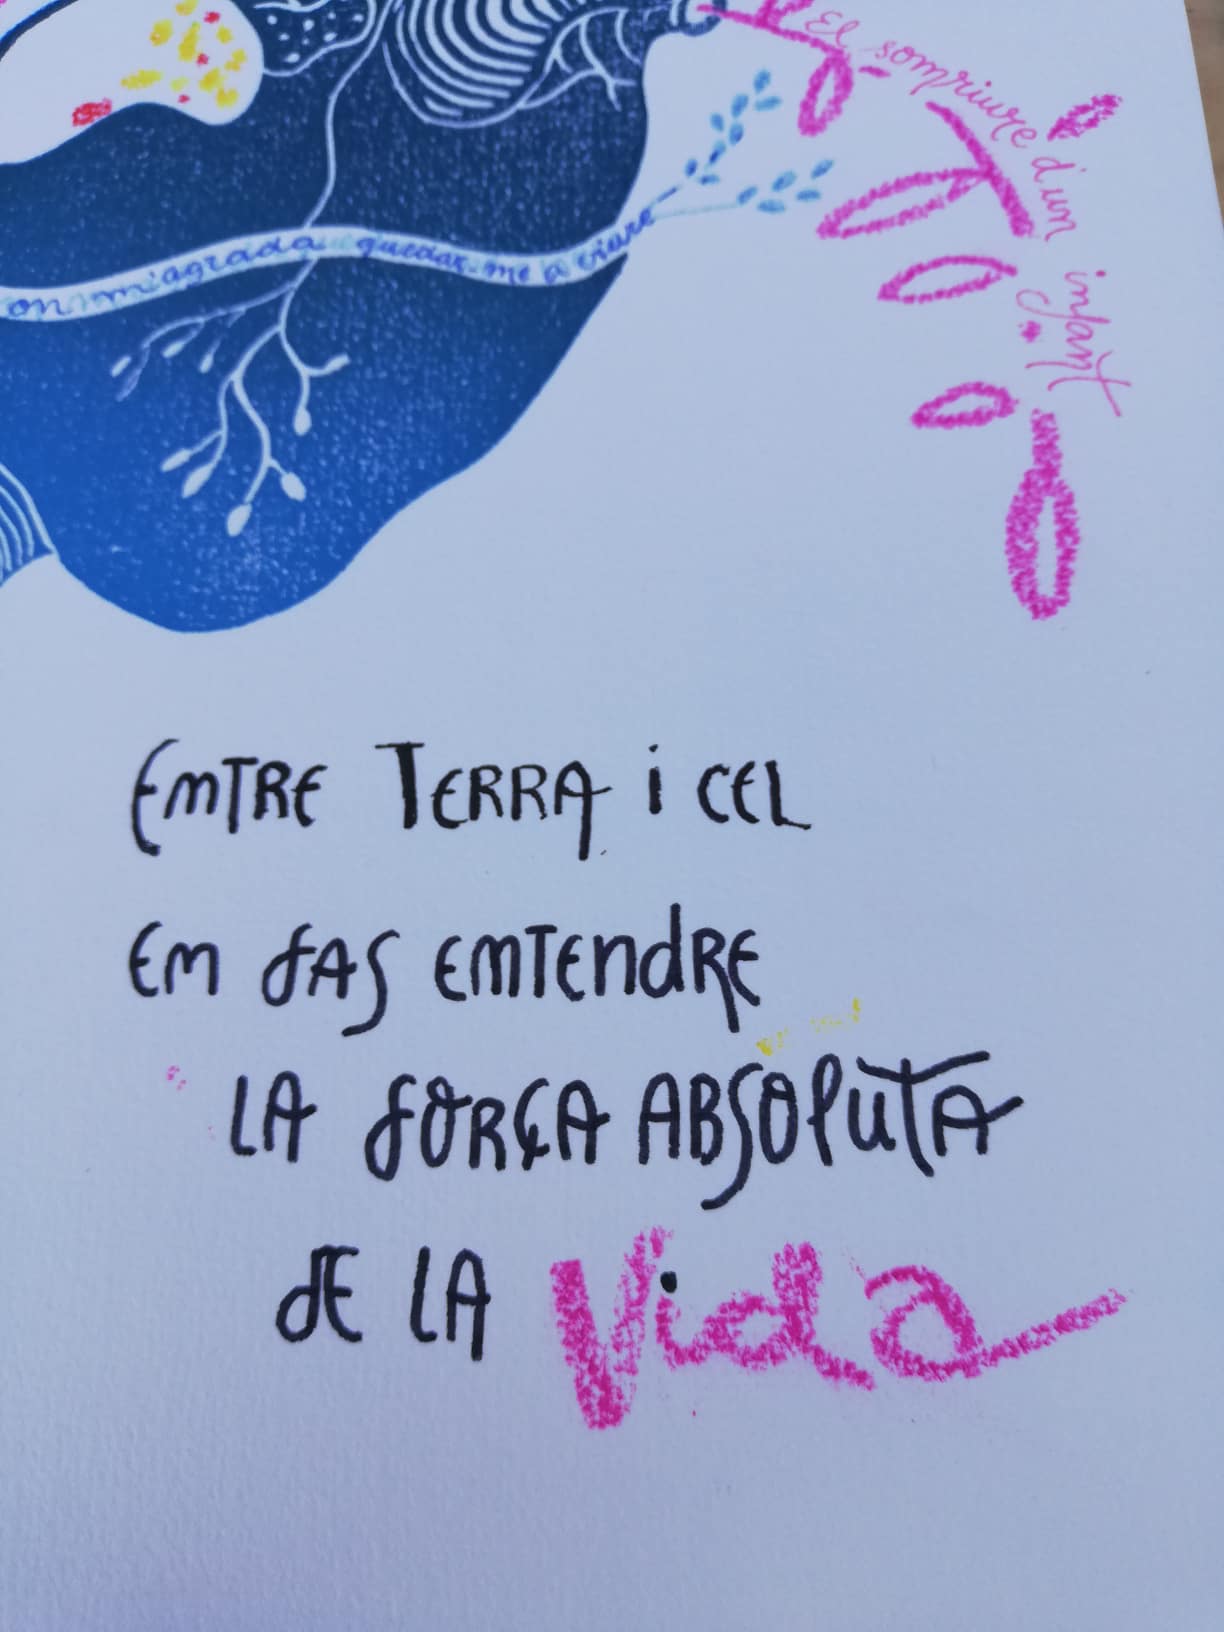 El somriure d'un infant
on m'agrada quedar-me a viure
Entre Terra i cel
em fas entendre
la força absoluta
de la Vida